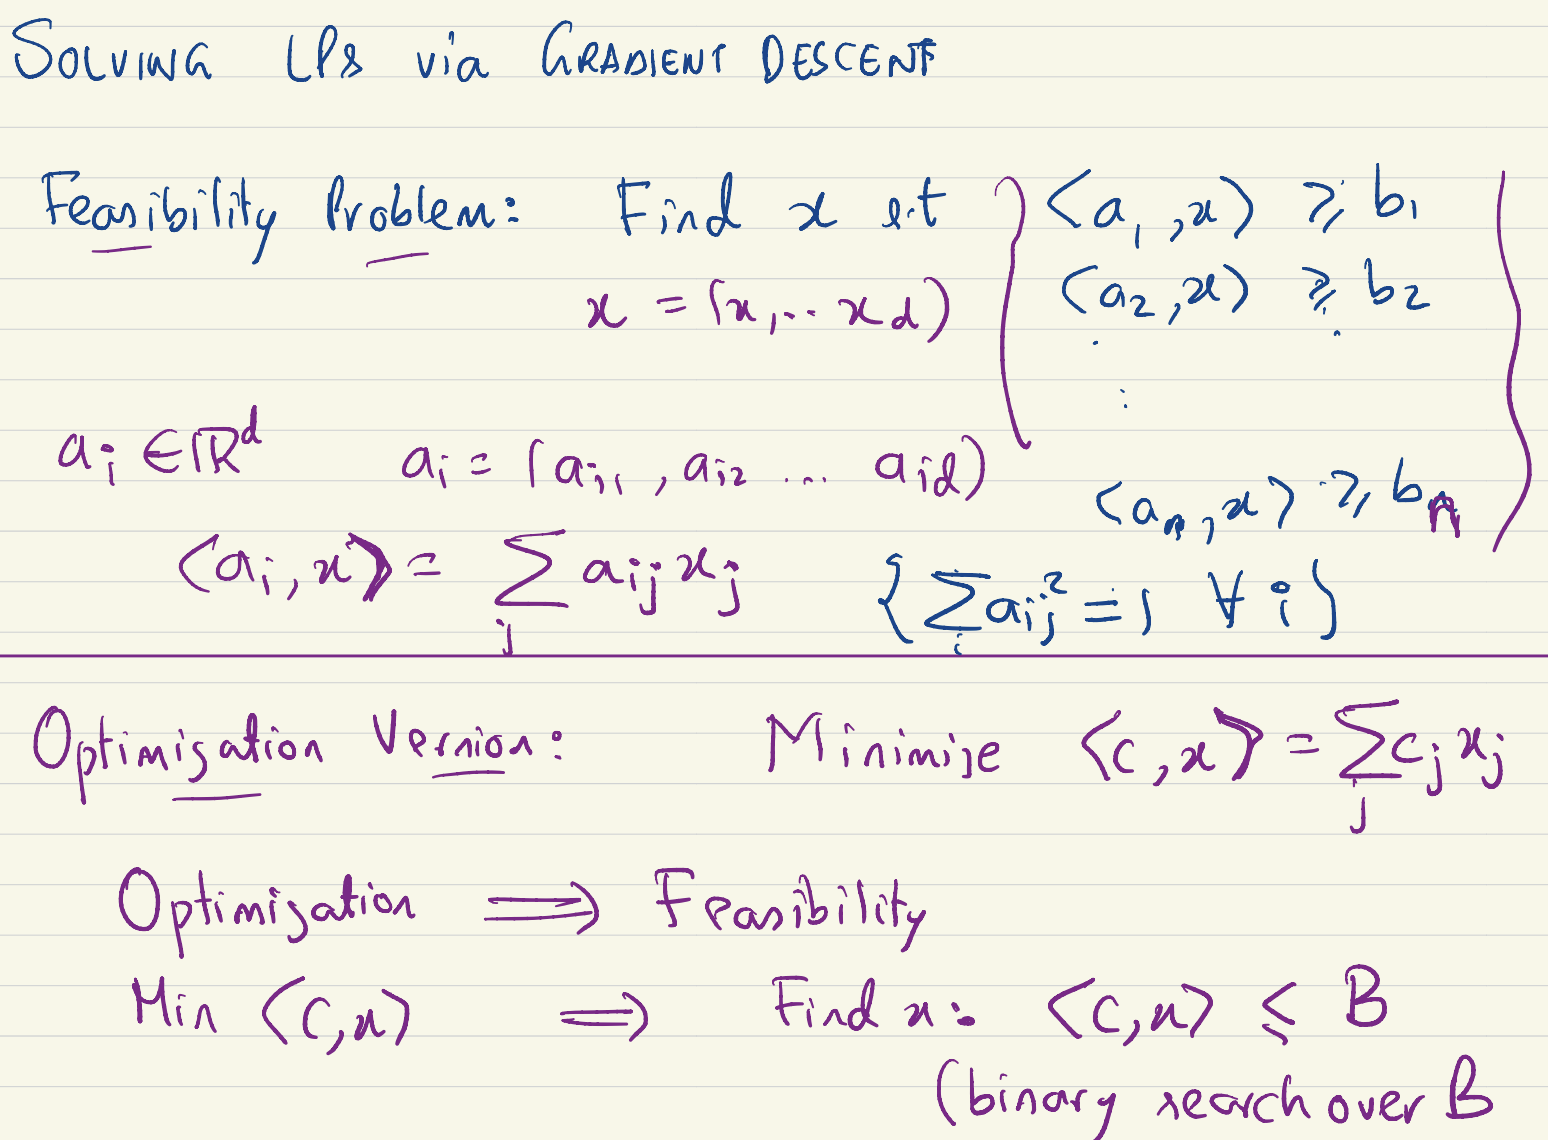 SOLVING LPs via GRADIENT DESCENT
Feasibility Problem: Find x s.t ⟨a₁, x⟩ ≥ b₁
x = (x₁... x_d) ⟨a₂, x⟩ ≥ b₂
:
a_i ∈ ℝ^d a_i = (a_i1, a_i2 ... a_id) ⟨a_n, x⟩ ≥ b_n
⟨a_i, x⟩ = ∑_j a_ij x_j {∑_i a_ij² = 1 ∀ i}
Optimization Version: Minimize ⟨c, x⟩ = ∑_j c_j x_j
Optimization ⟹ Feasibility
Min ⟨c, x⟩ ⟹ Find x: ⟨c, x⟩ ≤ B
(binary search over B